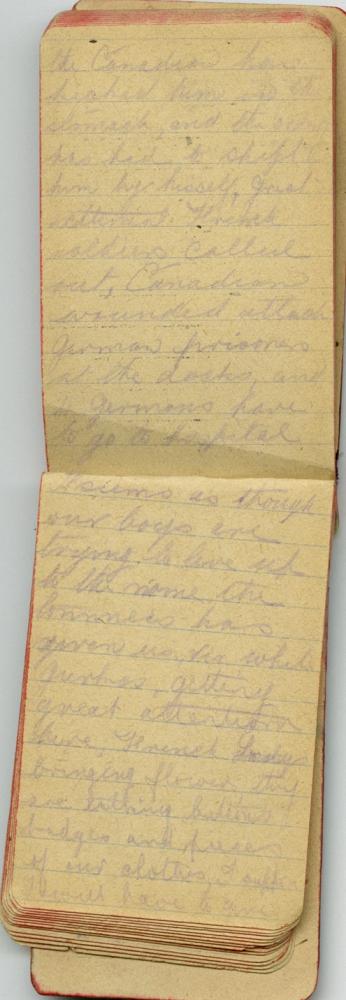 the Canadian has
kicked him in the
stomach, and the
has had to shift
him by hisself, great
excitement. French
soldiers called
out, Canadian
wounded attack
German prisoners
at the docks, and
Germans have
to go to hospital
seems as though
our boys are
trying to live up
to the name the
has
given us, white
Gurkas, getting
great attention
here, French Ladys
bringing flowers they
are buttons
badges and pieces
of our clothes, I
will have to give